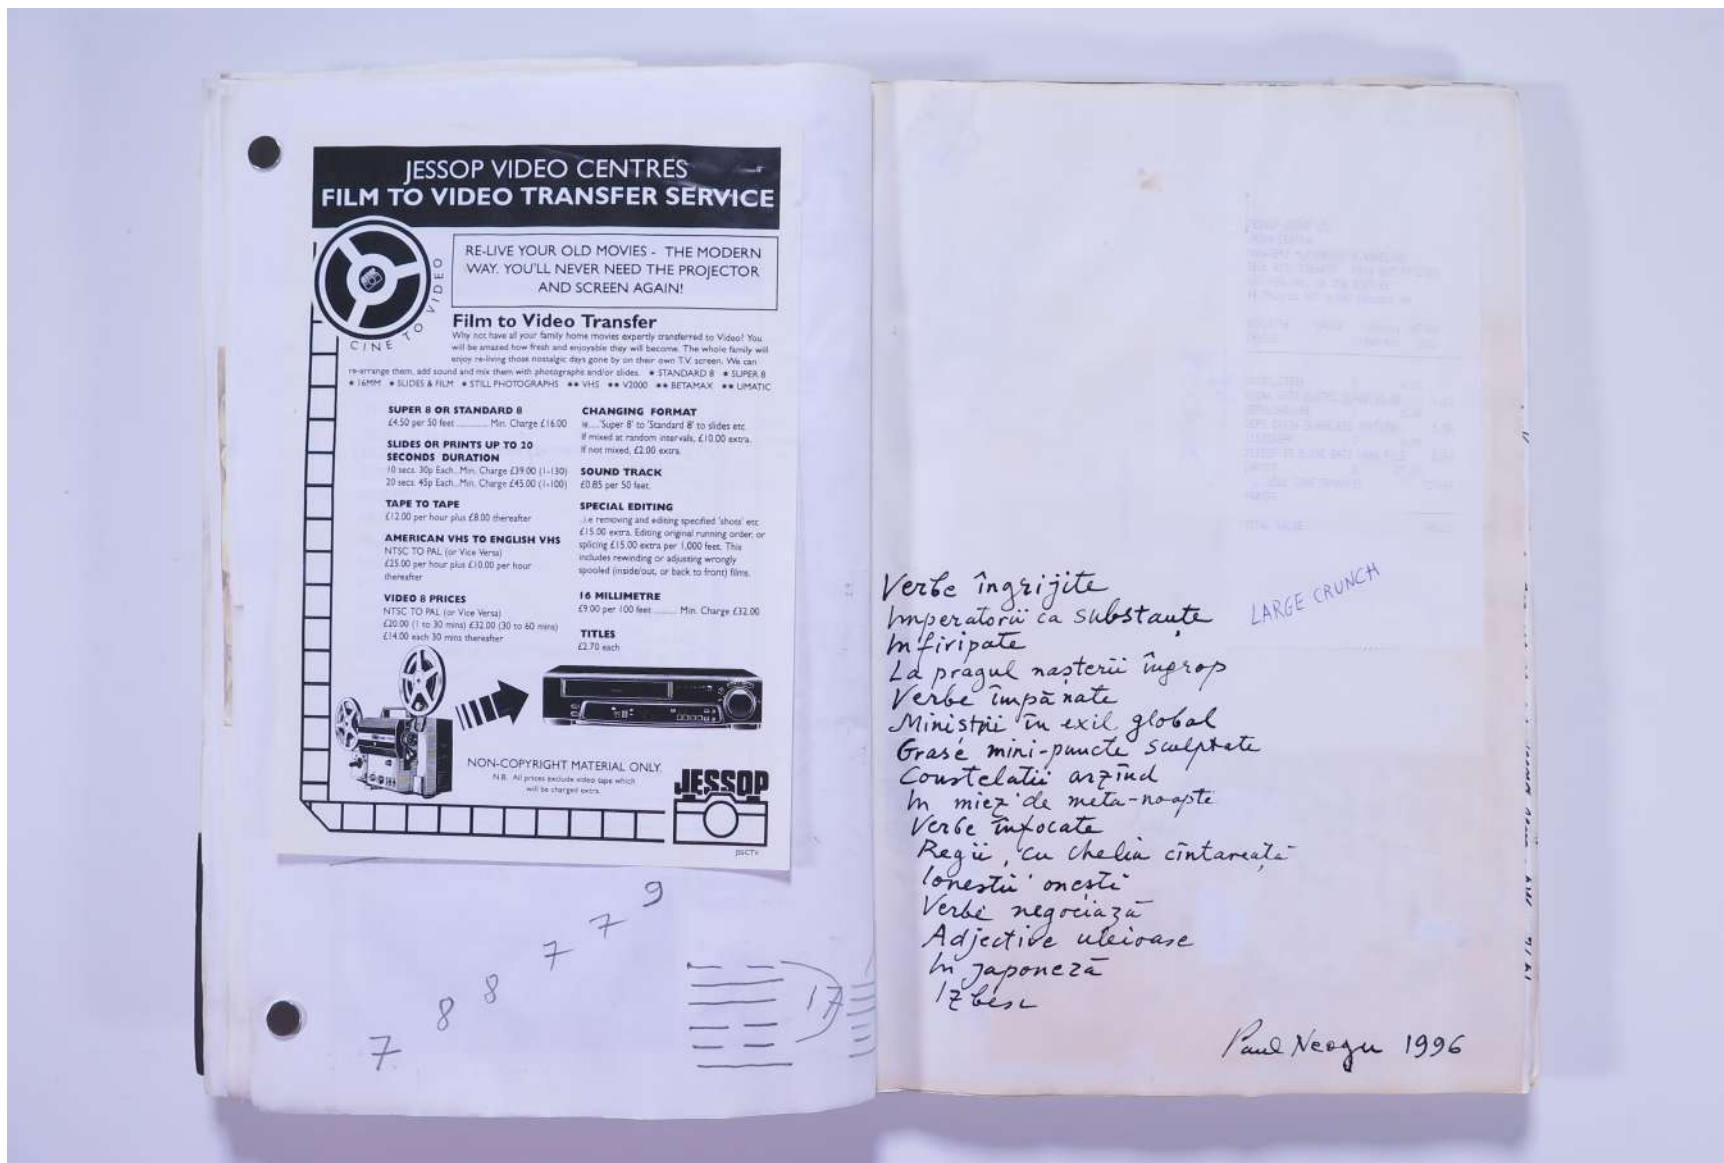 JESSOP VIDEO CENTRES
FILM TO VIDEO TRANSFER SERVICE
CINE TO VIDEO
RE-LIVE YOUR OLD MOVIES - THE MODERN
WAY. YOU'LL NEVER NEED THE PROJECTOR
AND SCREEN AGAIN!
Film to Video Transfer
Why not have all your family home movies expertly transferred to Video! You
will be amazed how fresh and enjoyable they will become. The whole family will
enjoy re-living those nostalgic days gone by on their own T.V. screen. We can
re-arrange them, add sound and mix them with photographs and/or slides. ★ STANDARD 8 ★ SUPER 8
★ 16MM ★ SLIDES & FILM ★ STILL PHOTOGRAPHS ★★ VHS ★★ V2000 ★★ BETAMAX ★★ UMATIC
SUPER 8 OR STANDARD 8
£4.50 per 50 feet .......... Min. Charge £16.00
SLIDES OR PRINTS UP TO 20
SECONDS DURATION
10 secs. 30p Each...Min. Charge £39.00 (1-130)
20 secs. 45p Each...Min. Charge £45.00 (1-100)
TAPE TO TAPE
£12.00 per hour plus £8.00 thereafter
AMERICAN VHS TO ENGLISH VHS
NTSC TO PAL (or Vice Versa)
£25.00 per hour plus £10.00 per hour
thereafter
VIDEO 8 PRICES
NTSC TO PAL (or Vice Versa)
£20.00 (1 to 30 mins) £32.00 (30 to 60 mins)
£14.00 each 30 mins thereafter
CHANGING FORMAT
ie....'Super 8' to 'Standard 8' to slides etc.
If mixed at random intervals, £10.00 extra.
If not mixed, £2.00 extra.
SOUND TRACK
£0.85 per 50 feet.
SPECIAL EDITING
...i.e removing and editing specified 'shots' etc
£15.00 extra. Editing original running order, or
splicing £15.00 extra per 1,000 feet. This
includes rewinding or adjusting wrongly
spooled (inside/out, or back to front) films.
16 MILLIMETRE
£9.00 per 100 feet ........ Min. Charge £32.00
TITLES
£2.70 each
NON-COPYRIGHT MATERIAL ONLY.
N.B. All prices exclude video tape which
will be charged extra.
JESSOP
7 8 8 7 7 9
17
Verbe îngrijite
Imperatorii ca substanțe
Infiripate
La pragul nașterii îngrop
Verbe împănate
Miniștrii în exil global
Grase mini-puncte sculptate
Constelatii arzînd
In miez de meta-noapte
Verbe înfocate
Regii, cu chelia cîntareață
Ionestii onesti
Verbe negociază
Adjective uleioase
In japoneză
Izbesc
Paul Neagu 1996
LARGE CRUNCH